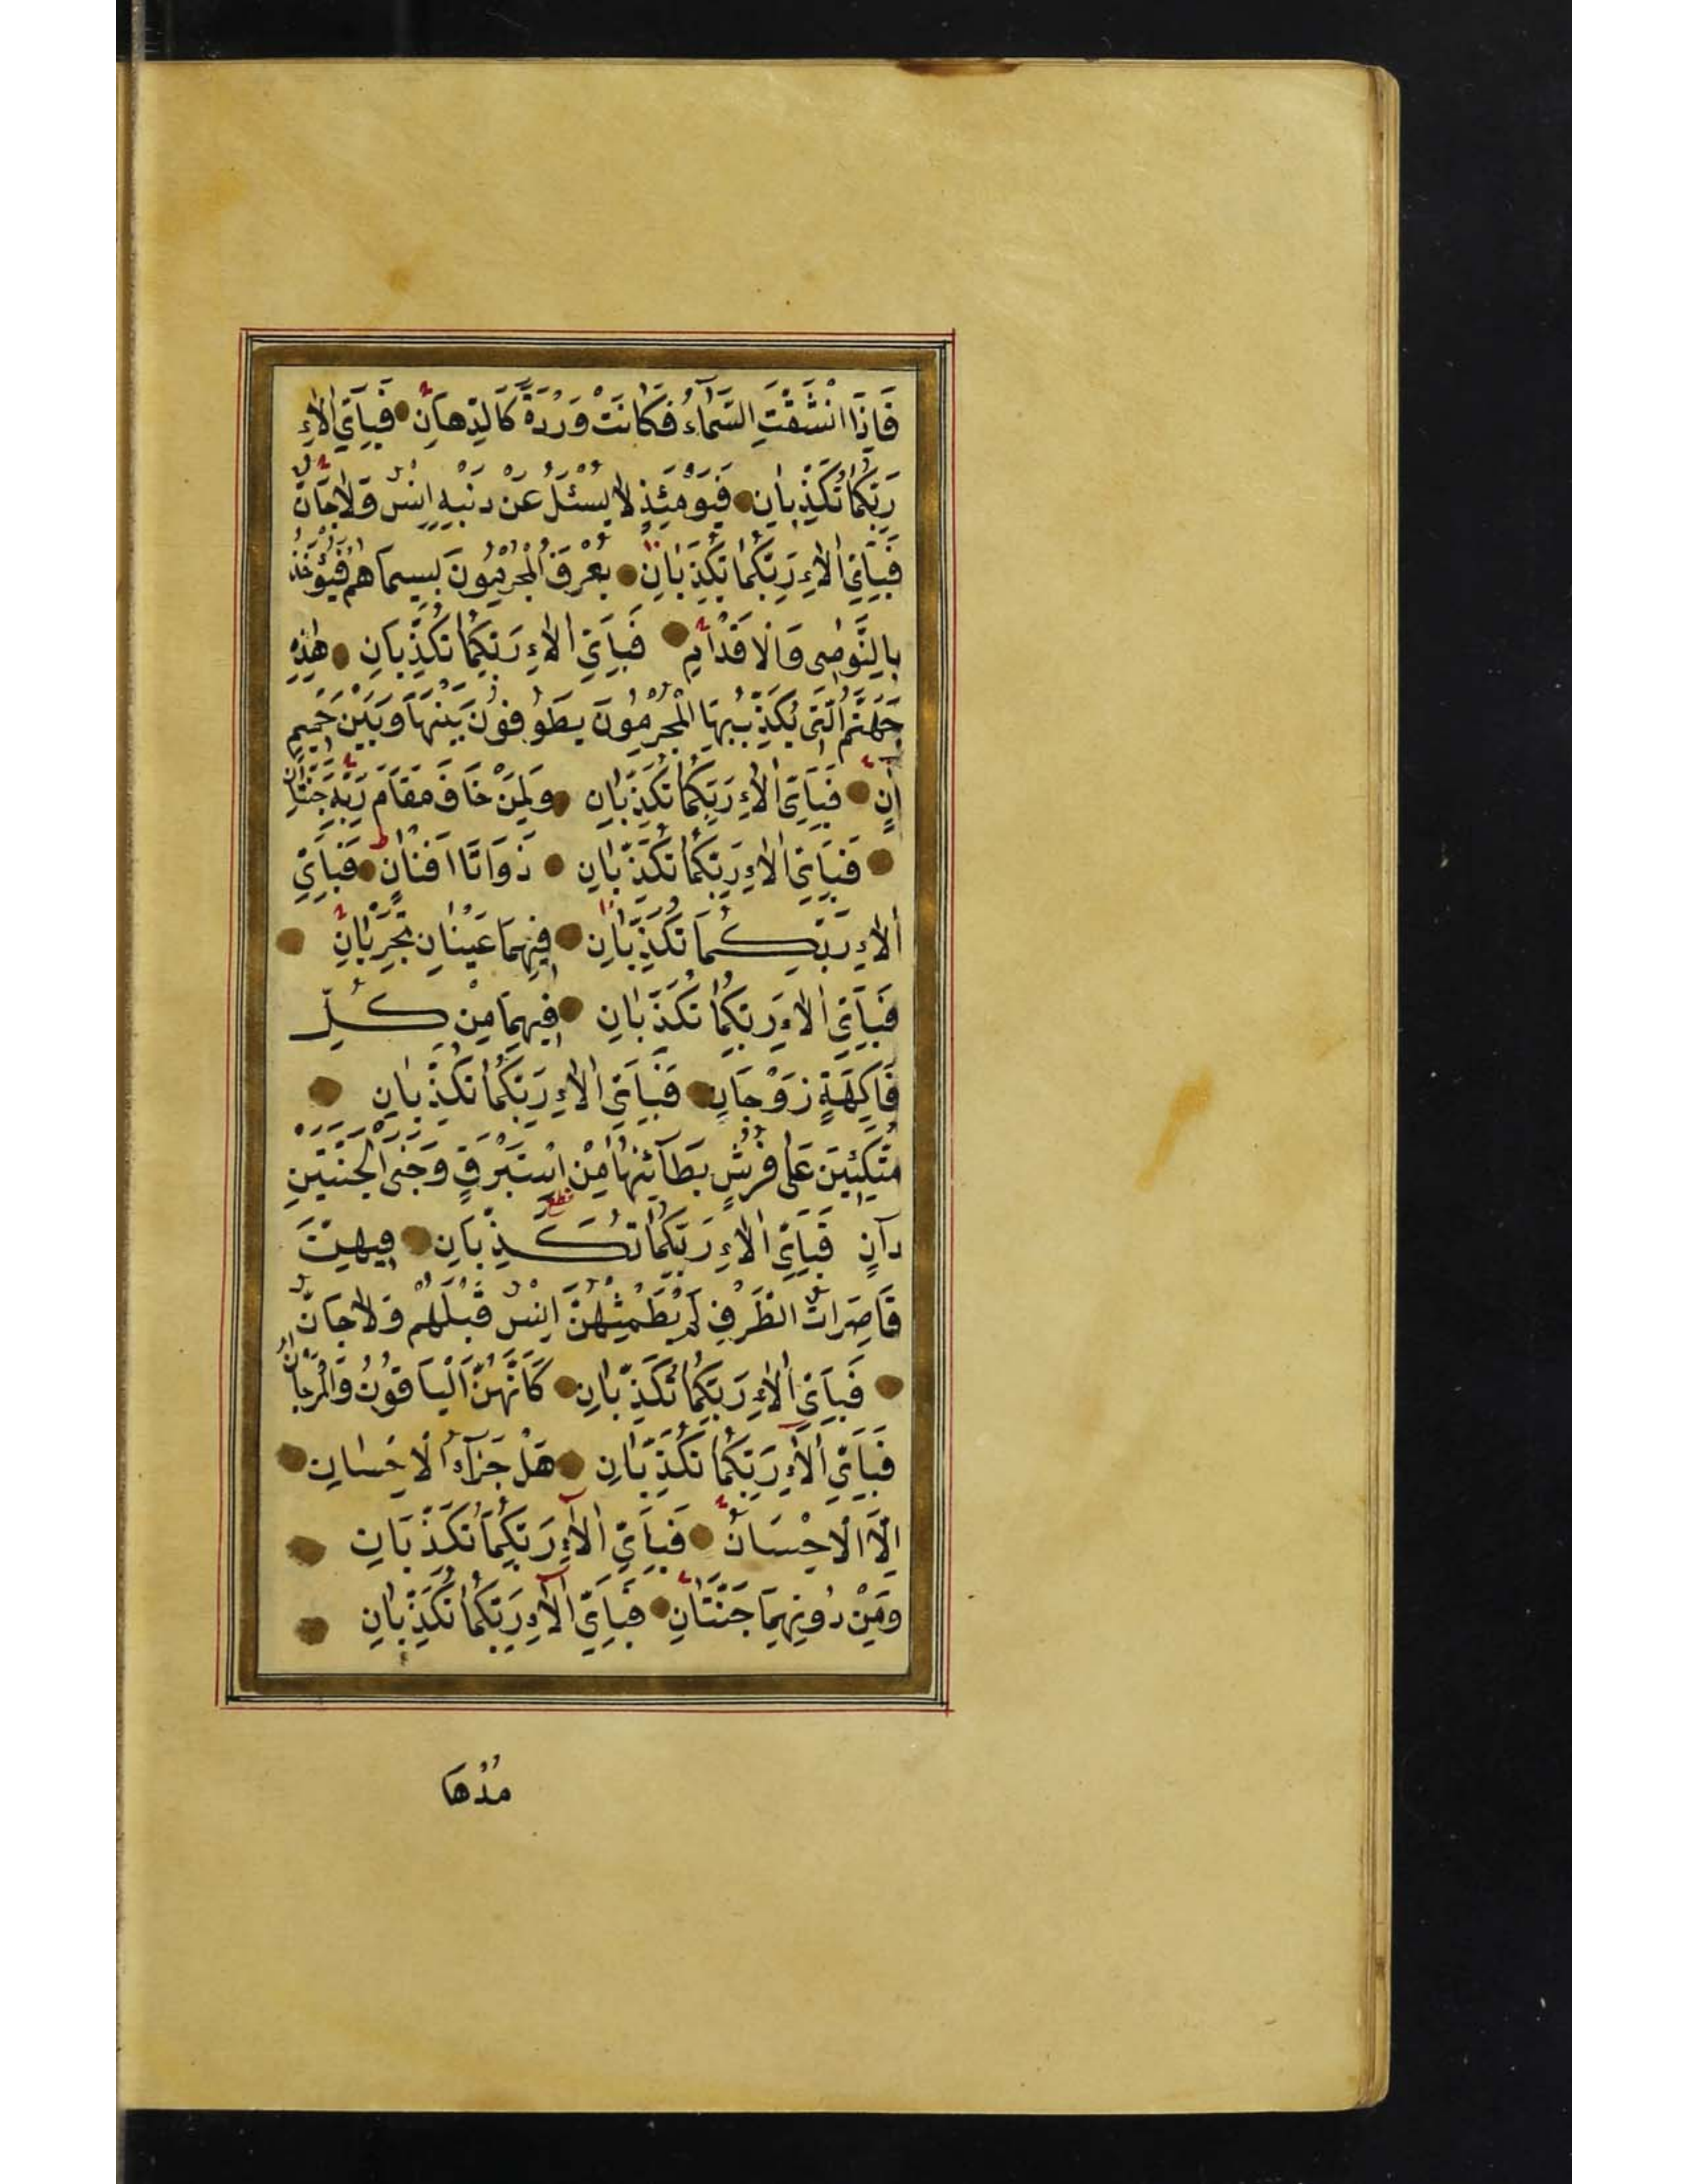 فَإِذَا انْشَقَّتِ السَّمَاءُ فَكَانَتْ وَرْدَةً كَالدِّهَانِ فَبِأَيِّ اٰلَاءِ
رَبِّكُمَا تُكَذِّبَانِ فَيَوْمَئِذٍ لَا يُسْئَلُ عَنْ ذَنْبِهِ اِنْسٌ وَلَا جَانٌّ
فَبِأَيِّ اٰلَاءِ رَبِّكُمَا تُكَذِّبَانِ يُعْرَفُ الْمُجْرِمُونَ بِسِيمَاهُمْ فَيُؤْخَذُ
بِالنَّوٰصِى وَالْاَقْدَامِ فَبِأَيِّ اٰلَاءِ رَبِّكُمَا تُكَذِّبَانِ هٰذِهِ
جَهَنَّمُ الَّتِى يُكَذِّبُ بِهَا الْمُجْرِمُونَ يَطُوفُونَ بَيْنَهَا وَبَيْنَ حَمِيمٍ
اٰنٍ فَبِأَيِّ اٰلَاءِ رَبِّكُمَا تُكَذِّبَانِ وَلِمَنْ خَافَ مَقَامَ رَبِّهِ جَنَّتَانِ
فَبِأَيِّ اٰلَاءِ رَبِّكُمَا تُكَذِّبَانِ ذَوَاتَا اَفْنَانٍ فَبِأَيِّ
اٰلَاءِ رَبِّكُمَا تُكَذِّبَانِ فِيهِمَا عَيْنَانِ تَجْرِيَانِ
فَبِأَيِّ اٰلَاءِ رَبِّكُمَا تُكَذِّبَانِ فِيهِمَا مِنْ كُلِّ
فَاكِهَةٍ زَوْجَانِ فَبِأَيِّ اٰلَاءِ رَبِّكُمَا تُكَذِّبَانِ
مُتَّكِئِينَ عَلٰى فُرُشٍ بَطَآئِنُهَا مِنْ اِسْتَبْرَقٍ وَجَنَى الْجَنَّتَيْنِ
دَانٍ فَبِأَيِّ اٰلَاءِ رَبِّكُمَا تُكَذِّبَانِ فِيهِنَّ
قَاصِرَاتُ الطَّرْفِ لَمْ يَطْمِثْهُنَّ اِنْسٌ قَبْلَهُمْ وَلَا جَانٌّ
فَبِأَيِّ اٰلَاءِ رَبِّكُمَا تُكَذِّبَانِ كَاَنَّهُنَّ الْيَاقُوتُ وَالْمَرْجَانُ
فَبِأَيِّ اٰلَاءِ رَبِّكُمَا تُكَذِّبَانِ هَلْ جَزَآءُ الْاِحْسَانِ
اِلَّا الْاِحْسَانُ فَبِأَيِّ اٰلَاءِ رَبِّكُمَا تُكَذِّبَانِ
وَمِنْ دُونِهِمَا جَنَّتَانِ فَبِأَيِّ اٰلَاءِ رَبِّكُمَا تُكَذِّبَانِ
مُدْهَا